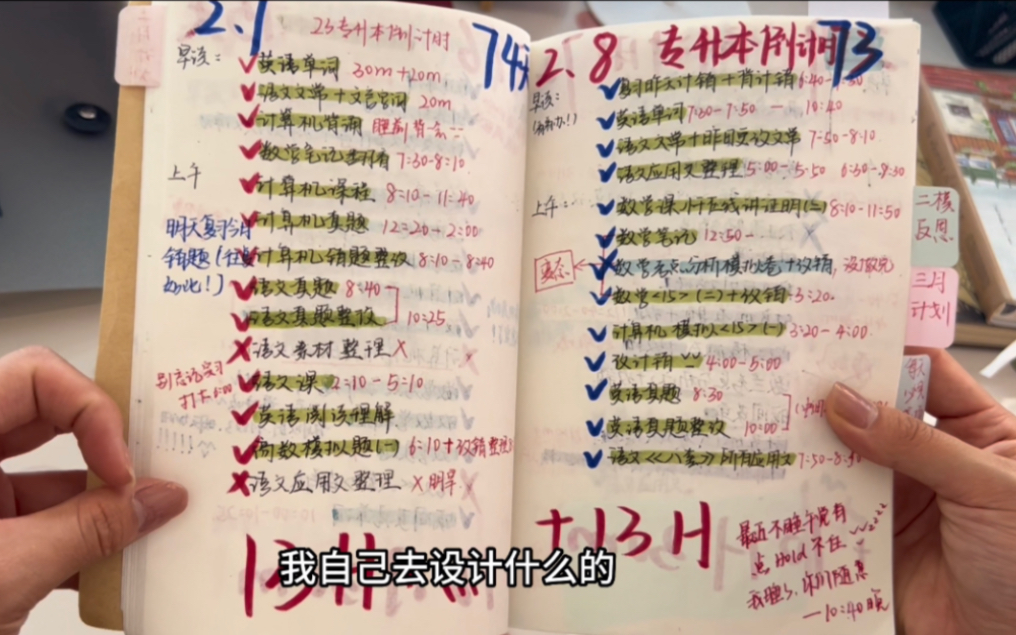 2.1
23专升本倒计时
74天
早读:
英语单词 30m+20m
语文文常+文言实词 20m
计算机背诵 睡前背一
数学笔记 7:30-8:10
上午
计算机课程 8:10-11:40
计算机真题 12:20-2:00
明天复习今日
错题(往复
如此!)
计算机错题整改 8:10-8:40
语文真题 8:40-
语文真题整改 10:25
语文素材整理 X
语文课 2:10-5:10
打卡6:00
英语阅读理解
高数模拟题(一) 6:10+改错整理
语文应用文整理 X 明早
13H
2.8
专升本倒计时
73
早读:
复习昨天计错+背计错 6:40-
英语单词 7:30-7:50 一 10:40
语文文常+昨日更改文常 7:50-8:10
语文应用文整理 5:00-5:50 6:30-8:30
上午:
数学课 8:10-11:50
数学笔记 12:50-
数学考点分析模拟卷+改错,没做完
数学<15>(二)+改错 3:20
计算机模拟<15>(一) 3:20-4:00
4:00-5:00
英语真题 8:30
英语真题整改 10:00
语文<<八套>>所有应用文 7:50-8:30
+13H
最近不睡午觉有
点 Hold 不住
我睡了,你们随意
—10:40晚
二模
反思
三月
计划
我自己去设计什么的